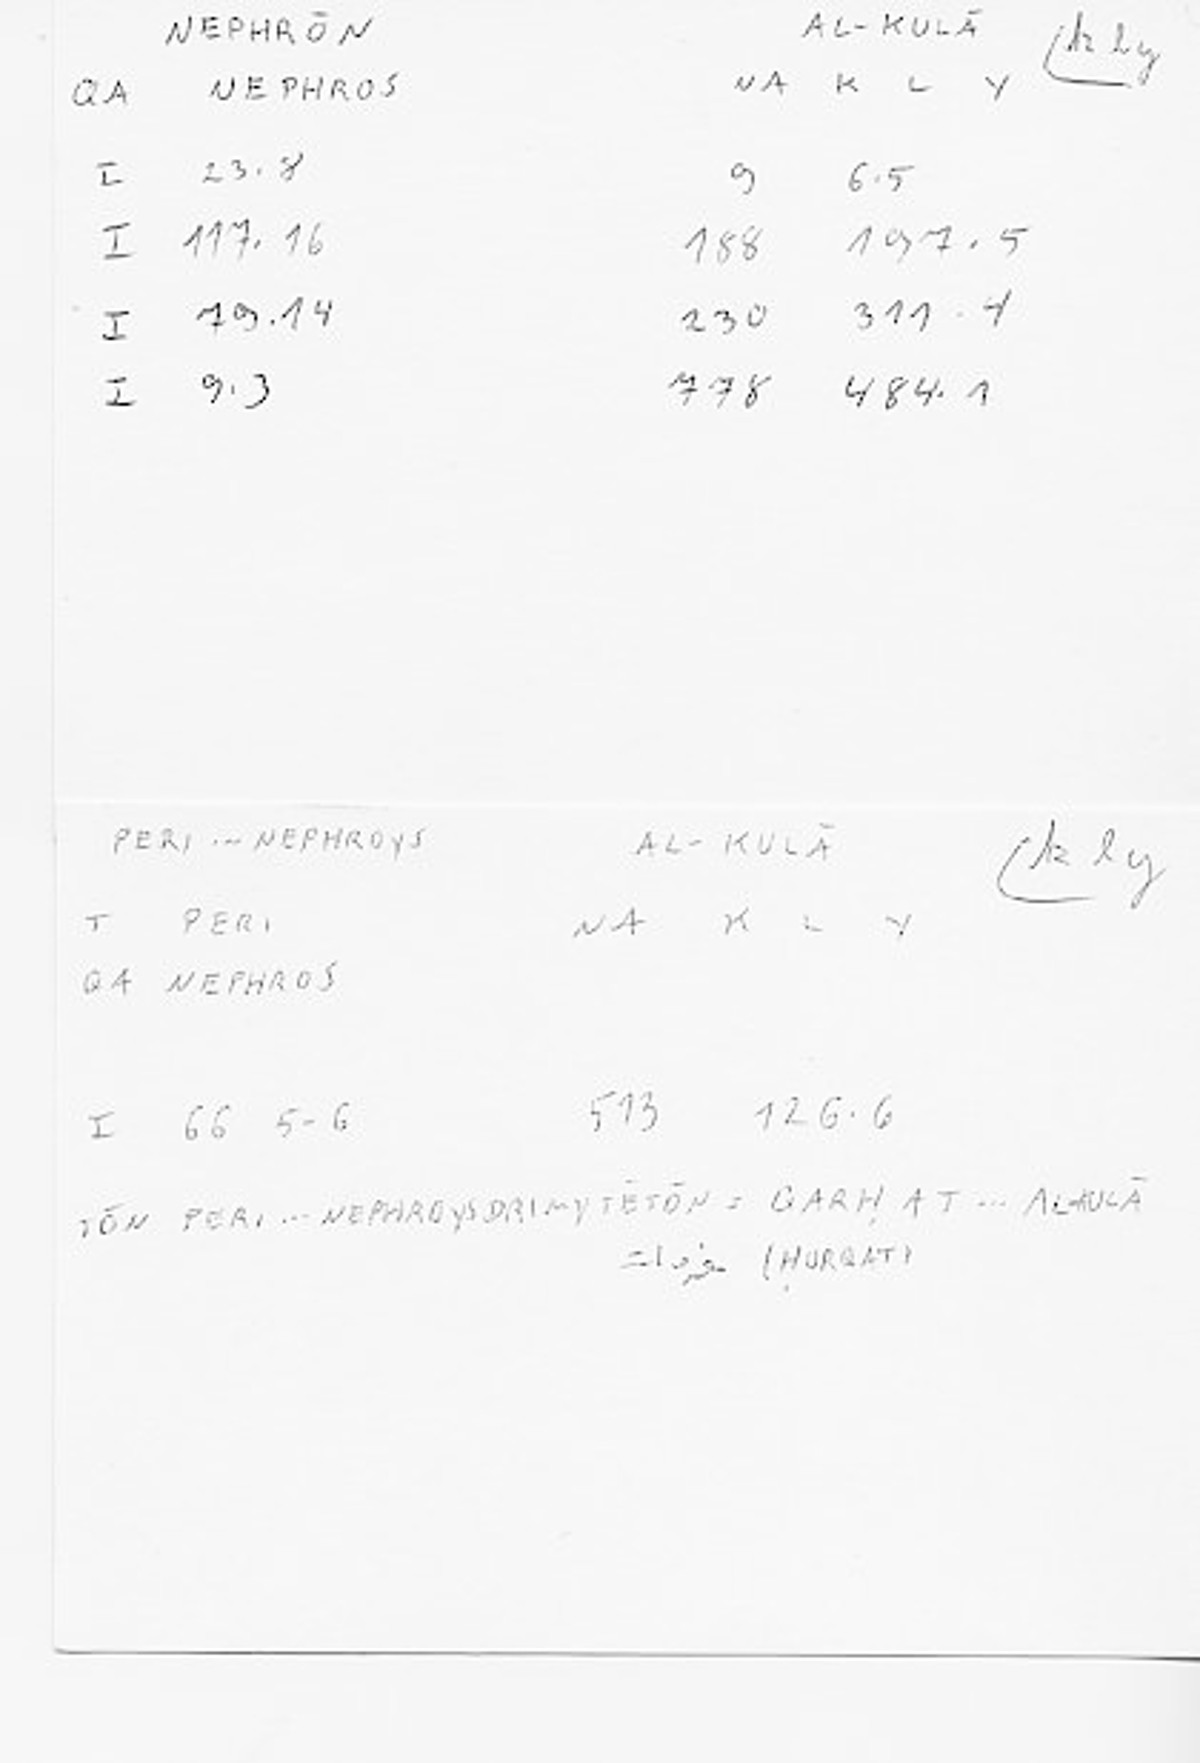 NEPHRŌN AL-KULĀ kly
QA NEPHROS NA K L Y
I 23.8 9 6.5
I 117.16 188 197.5
I 79.14 230 311.4
I 9.3 778 484.1
PERI ... NEPHROYS AL-KULĀ kly
T PERI NA K L Y
QA NEPHROS
I 66 5-6 513 126.6
TŌN PERI ... NEPHROYS DRIMYTĒTŌN = QARḤAT ... AL-KULĀ
(ḤURQAT)